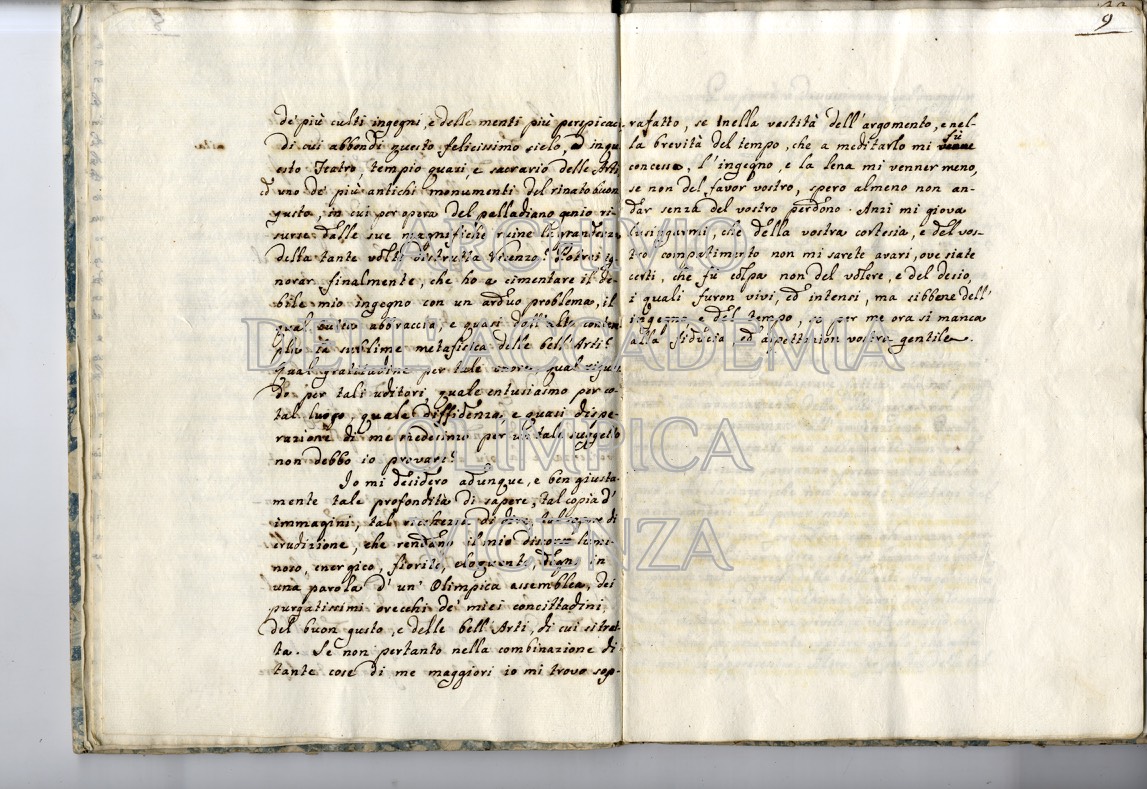 9
de' più culti ingegni, e delle menti più perspicaci
di cui abbondi questo felicissimo cielo, ed in qu
esto Teatro, tempio quasi, e sacrario delle Arti
ed uno de' più antichi monumenti del rinato buon
gusto, in cui per opera del palladiano genio ri-
surse dalle sue magnifiche ruine la grandezza
della tante volte distrutta Vicenza? Potrei ig-
norar finalmente, che ho a cimentare il de-
bile mio ingegno con un arduo problema, il
qual tutta abbraccia, e quasi dall'alto contem
pla la sublime metafisica delle bell'Arti?
Qual gratitudine per tale onore, qual rigua
do per tali uditori, quale entusiasmo per co-
tal luogo, quale diffidenza, e quasi dispe-
razione di me medesimo per un tale suggetto
non debbo io provare?
Io mi desidero adunque, e ben giusta-
mente tale profondità di sapere, tal copia d'
immagini, tal ricchezza di dire, di
erudizione, che rendano il mio discorso lumi-
noso, energico, fiorito, eloquente, degno in
una parola d'un' Olimpica assemblea, dei
purgatissimi orecchi de' miei concittadini,
del buon gusto, e delle bell'Arti, di cui si trat
ta. Se non pertanto nella combinazione di
tante cose di me maggiori io mi trovo sop-
rafatto, se nella vastità dell'argomento, e nel-
la brevità del tempo, che a meditarlo mi fù
concesso, l'ingegno, e la lena mi venner meno,
se non del favor vostro, spero almeno non an-
dar senza del vostro perdono. Anzi mi giova
lusingarmi, che della vostra cortesia, e del vos-
tro compatimento non mi sarete avari, ove siate
certi, che fù colpa non del volere, e del desio,
i quali furon vivi, ed intensi, ma sibbene dell'
ingegno e del tempo, se per me ora si manca
alla fiducia, ed aspettazion vostra gentile.
ARCHIVIO
DELL'ACCADEMIA
OLIMPICA
VICENZA